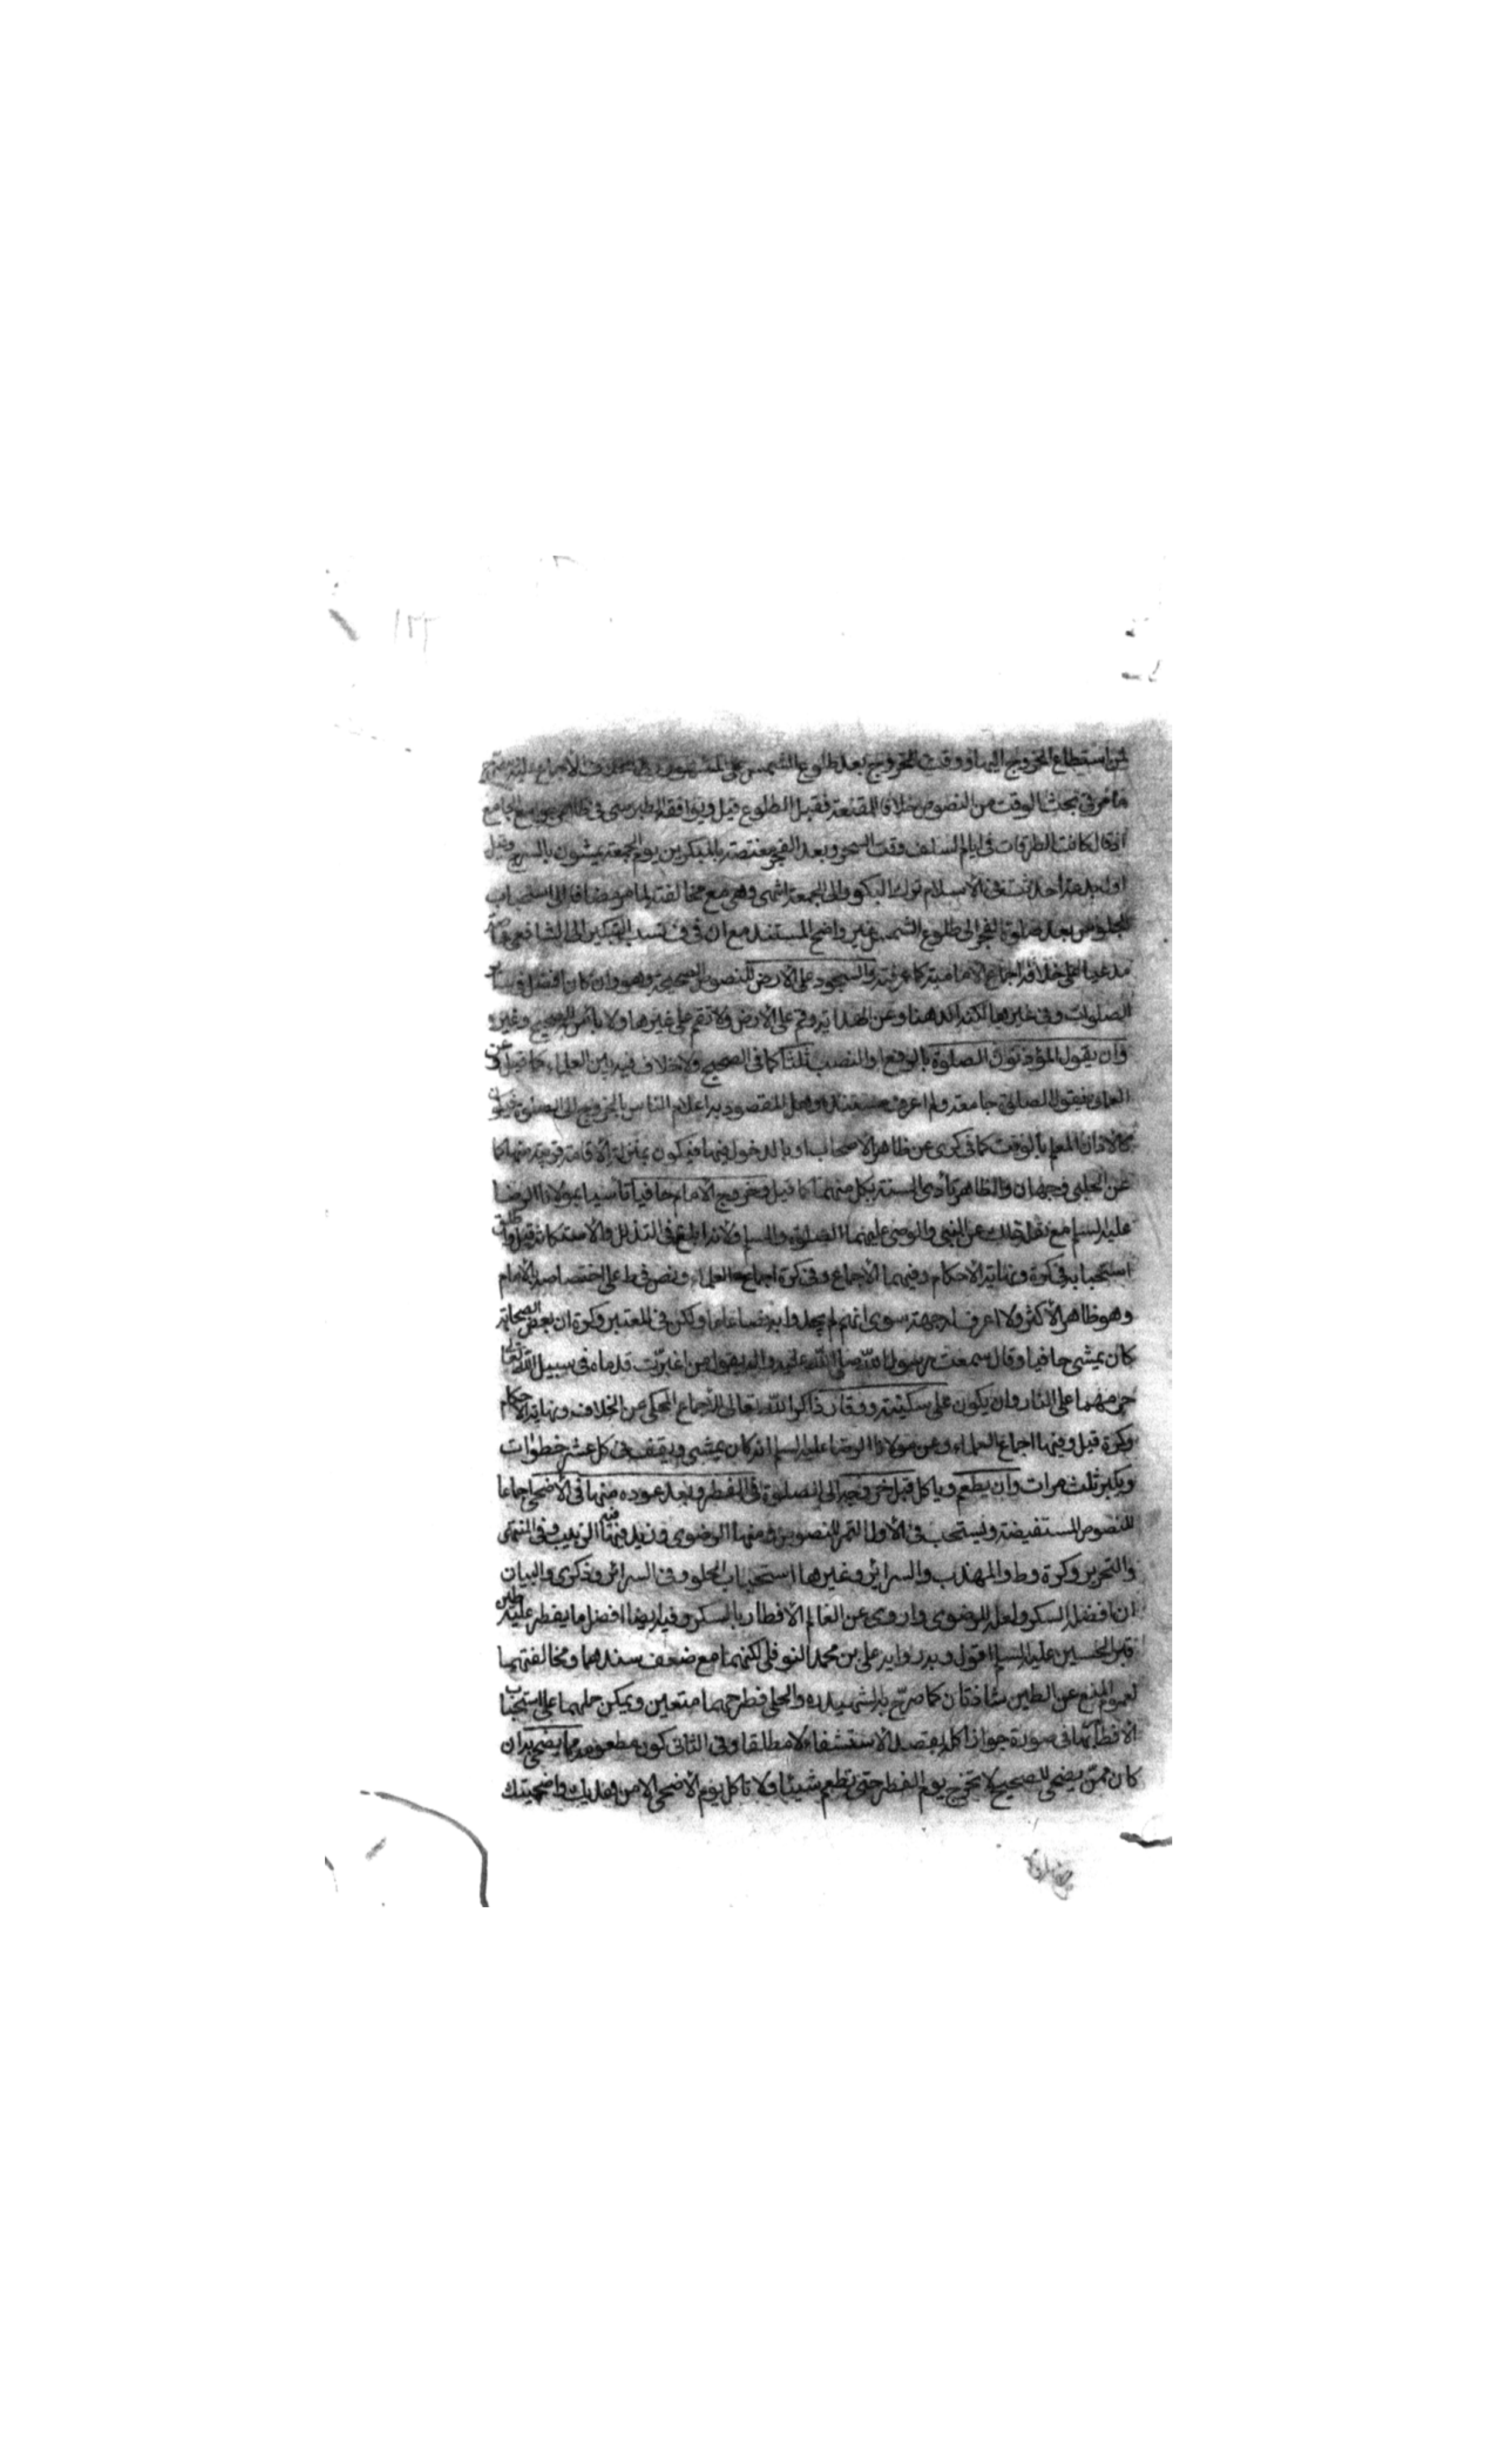 ١٢٢
لمن استطاع الخروج اليها ووقت الخروج بعد طلوع الشمس على المشهور الاجماع عليه
ما مر في بحث الوقت من النصوص خلافا للمقنعة فقبل الطلوع قيل ويوافقه الطبرسي في ظاهر جوامع الجامع
انه قال كانت الطرقات في ايام السلف وقت السحر وبعد الفجر مغتصة بالمبكرين يوم الجمعة يمشون بالسرج وقيل
اول بدعة احدثت في الاسلام ترك البكور الى الجمعة انتهى وهو مع مخالفته لما مر مضافا الى استحباب
الجلوس بعد صلوة الفجر الى طلوع الشمس غير واضح المستند مع ان في ف نسب التبكير الى الشافعي
مدعيا على خلافه اجماع الامامية كما عرفته والسجود على الارض للنصوص الصحيحة وهو وان كان افضل في
الصلوات وفي غيرها لكنه اكد هنا وعن الهداية وقم على الارض ولا تقم على غيرها ولا باس الصحيح وغيره
وان يقول المؤذنون الصلوة بالرفع او النصب ثلثا كما في الصحيح ولا خلاف فيه بين العلماء كما قيل وعن
العماني يقول الصلوة جامعة ولم اعرف مستنده وهل المقصود به اعلام الناس بالخروج الى المصلى فيكون
كالاذان المعلم بالوقت كما في كرى عن ظاهر الاصحاب او بالدخول فيها فيكون بمنزلة الاقامة قريبة منها كما
عن الحلبي وجهان والظاهر تأدي السنة بكل منهما كما قيل وخروج الامام حافيا تأسيا بمولانا الرضا
عليه السلم مع نقله ذلك عن النبي والوصي عليهما الصلوة والسلم ولانه ابلغ في التذلل والاستكانة قيل واطلق
استحبابه في كرة ونهاية الاحكام وفيهما الاجماع وفي كرة اجماع العلماء ونص في ط على اختصاصه بالامام
وهو ظاهر الاكثر ولا اعرف له جهة سوى انهم لم يجدوا به نصا عاما ولكن في المعتبر وكرة ان بعض الصحابة
كان يمشي حافيا وقال سمعت رسول الله صلى الله عليه واله يقول من اغبرت قدماه في سبيل الله تعالى
حرمهما على النار وان يكون على سكينة ووقار ذاكرا لله تعالى للاجماع المحكي عن الخلاف ونهاية الاحكام
وكرة قيل وفيها اجماع العلماء وعن مولانا الرضا عليه السلم انه كان يمشي ويقف في كل عشر خطوات
ويكبر ثلث مرات وان يطعم ويأكل قبل خروجه الى الصلوة في الفطر وبعد عوده منها في الاضحى اجماعا
للنصوص المستفيضة ويستحب في الاول التمر للنصوص ومنها الرضوي وزيد فيه الزبيب وفي المنتهى
والتحرير وكرة وط والمهذب والسرائر وغيرها استحباب الحلو وفي السرائر وذكرى والبيان
ان افضله السكر ولعله للرضوي واروي عن العالم الافطار بالسكر وفيه ايضا افضل ما يفطر عليه طين
قبر الحسين عليه السلم اقول وبه رواية علي بن محمد النوفلي لكنهما مع ضعف سندهما ومخالفتهما
لعموم المنع عن الطين شاذتان كما صرح به الشهيد ره والحلي فطرحهما متعين ويمكن حملهما على استحباب
الافطار في صورة جواز اكله بقصد الاستشفاء لا مطلقا وفي الثاني كون مطعومه مما يضحي به ان
كان ممن يضحي للصحيح لا تخرج يوم الفطر حتى تطعم شيئا ولا تأكل يوم الاضحى الا من هديك واضحيتك